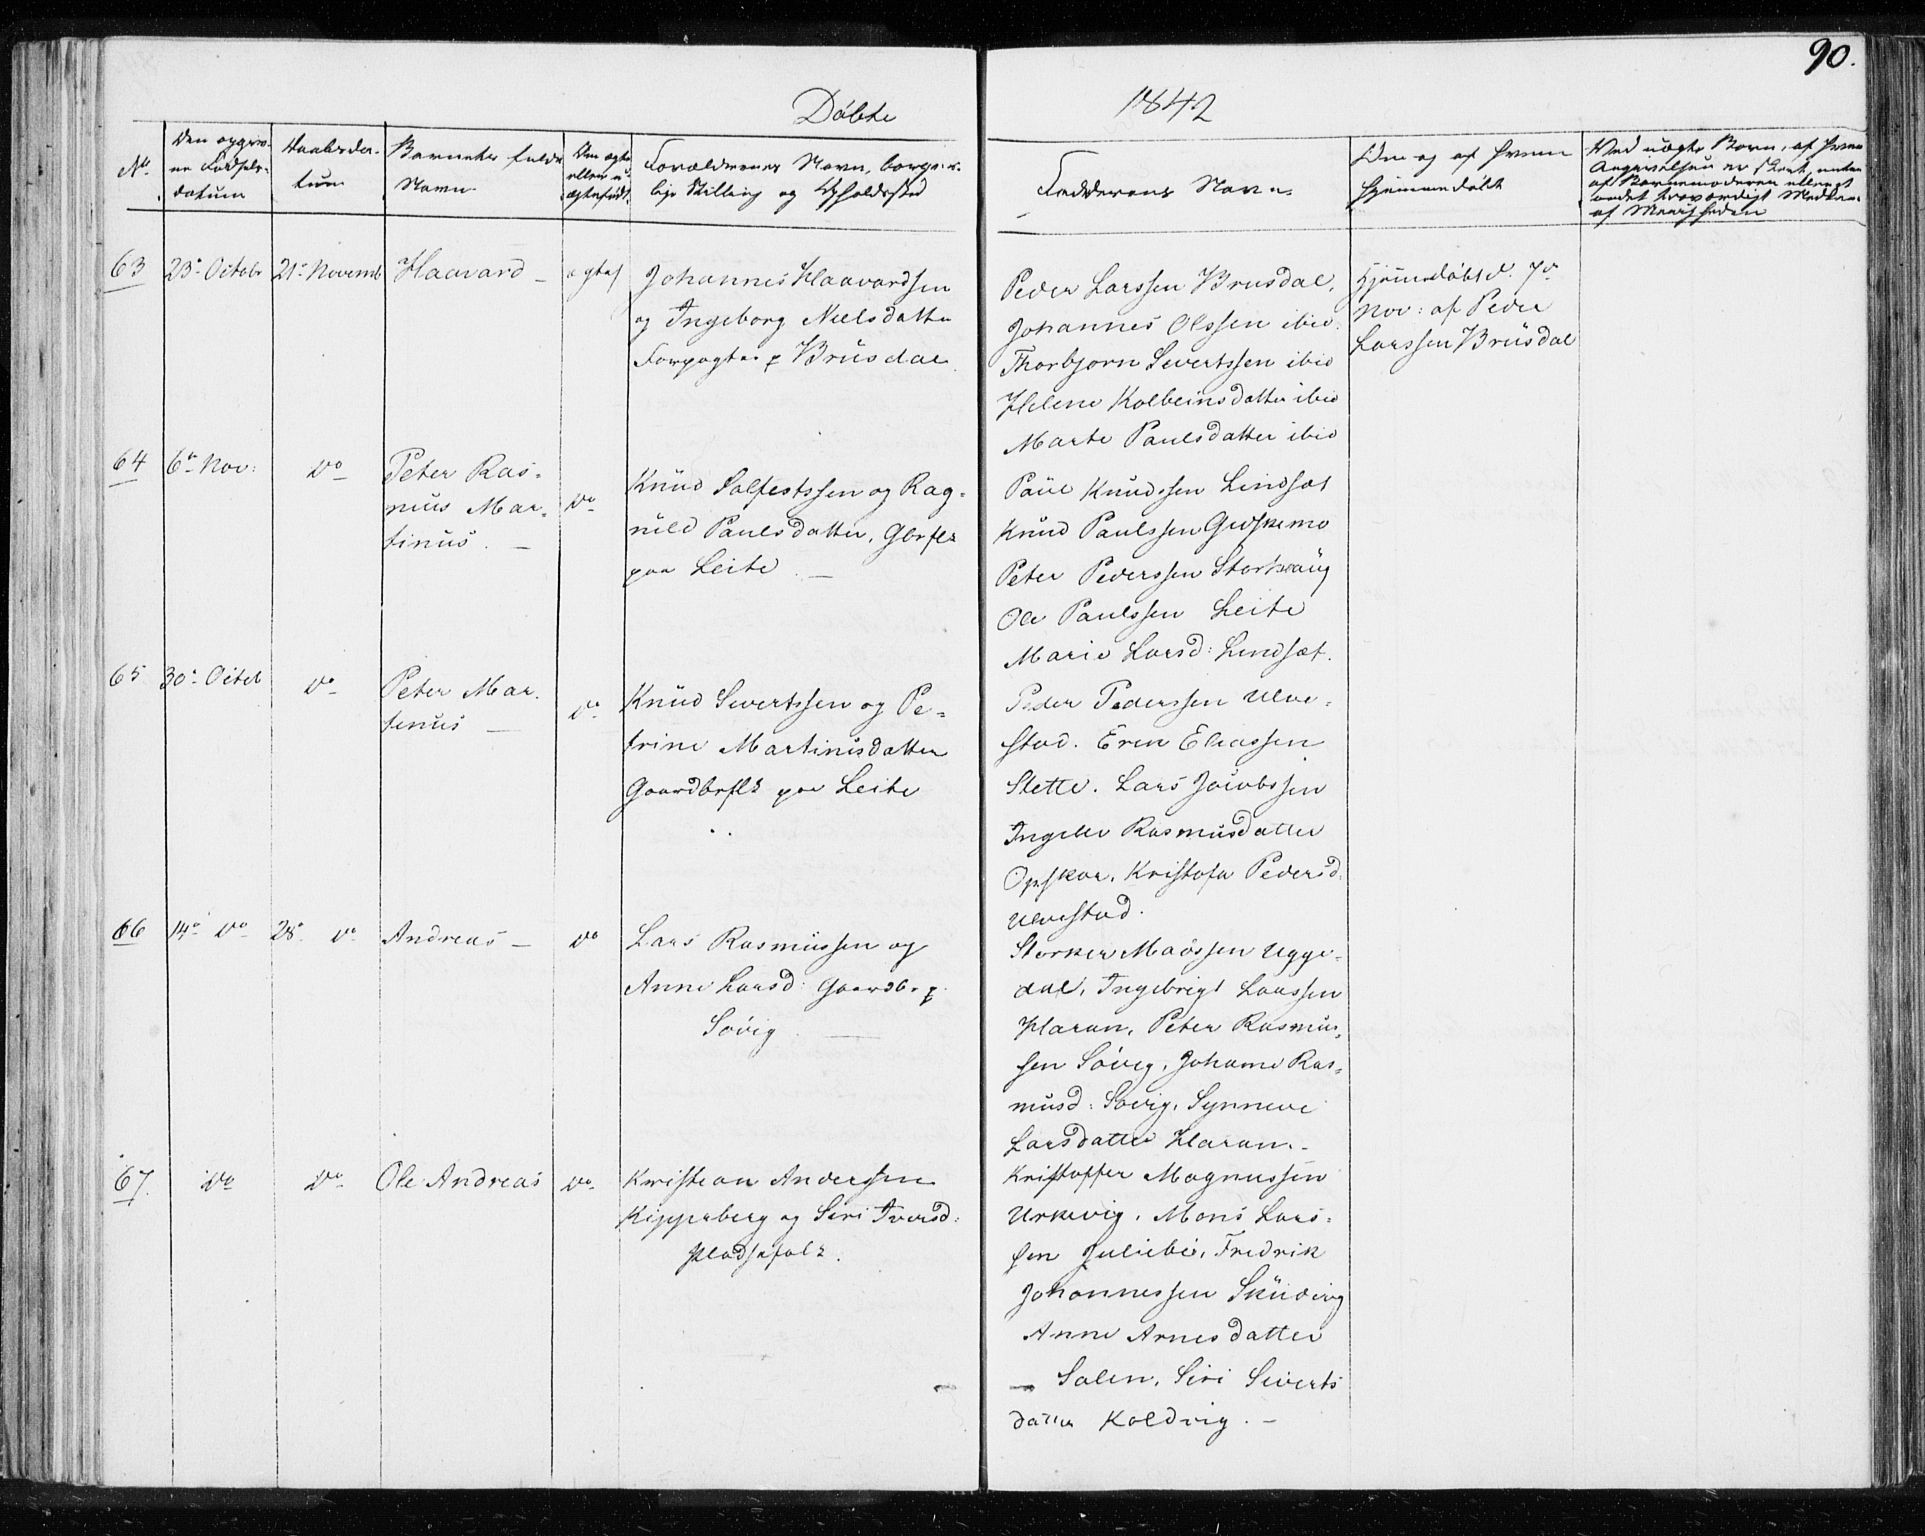 90.
Døbte
1842
No.
Den opgiv-
ne Fødsels-
datum
Daabsda-
tum
Barnets fulde
Navn
Om ægte
eller u-
ægtefødt.
Forældrenes Navn, borger-
lige Stilling og Opholdssted
Faddernes Navn
Om og af hvem
hjemmedøbt
Ved uægte Børn, af hvem
Angivelsen er skeet, enten
af Barnemoderen eller et
andet troværdigt Medlem
af Menigheden
63
23de Octobr
21de Novemb
Haavard –
ægtef
Johannes Haavardsen
og Ingeborg Nielsdatter
Forpagter p Brüsdal
Peder Larssen Brusdal,
Johannes Olssen ibid.
Thorbjørn Severtssen ibid
Helene Kolbeinsdatter ibid
Marte Paulsdatter ibid
Hjemdøbt d. 7de
Nov: af Peder
Larssen Brüsdal
64
6te Nov:
do
Peter Ras-
mus Mar-
tinus. –
do
Knud Salfestssen og Rag-
nild Paulsdatter, Gbrflk
paa Leite. –
Paul Knudssen Lindsæt
Knud Paulssen Giuskemo
Peter Pederssen
Ole Paulssen Leite
Marie Larsd: Lindsæt.
65
30te Octob
do
Peter Mar-
tinus –
do
Knud Severtssen og Pe-
trine Martinusdatter
Gaardbrflk paa Leite
Peder Pederssen Ulve-
stad. Eren Eliassen
Slette. Lars Jacobssen
Rasmusdatter
Opskar. Kristofa Pedersd.
Ulvestad.
66
14de do
28de do
Andreas –
do
Lars Rasmussen og
Anne Larsd: Gaardbr p
Søvig. —
Storker Madssen Ugge-
dal, Ingebrigt Larssen
Haram, Peter Rasmus-
sen Søvig, Johanne Ras-
musd: Søvig, Synneve
Larsdatter Haram. –
67.
do
do
Ole Andreas
do
Kristian Anderssen
Kipperberg og Siri Iversd:
pladsefolk.
Kristoffer Magnussen
Urkevig. Mons Lars-
sen Juliebø, Fredrik
Johannessen
Anne Arnesdatter
— Salen, Siri Siverts
datter Koldvig. –